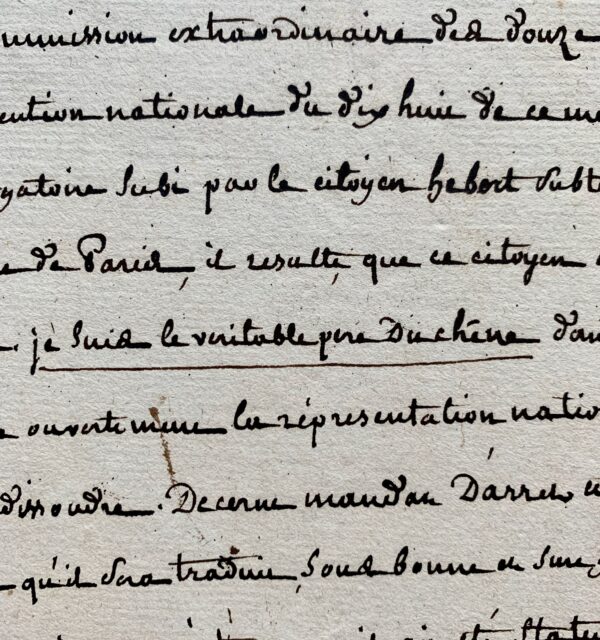 mmission extraordinaire des douze
ention nationale du dix huit de ce mo
gatoire subi par le citoyen hebert subt
e de Paris, il resulte que ce citoyen
je suis le veritable pere Duchêne dan
e ouvertement la réprésentation natio
dissoudre. Decerne mandat Dárret
qu'il sera traduit sous bonne et sure